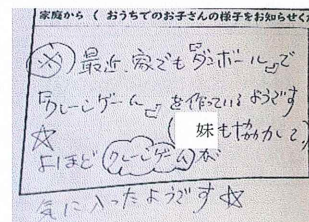 家庭から（おうちでのお子さんの様子をお知らせくだ
※ 最近、家でも『ダンボール』で
『クレーンゲーム』を作っているようです
☆ （妹も協力して）
よほど クレーンゲーム が
気に入ったようです☆